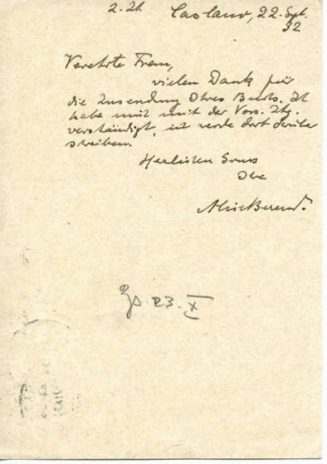 2. 21
Caslano, 22. Spt.
32
Verehrte Frau,
vielen Dank für
die Zusendung Ihres Buchs. Ich
habe mich mit der Vos. Ztg.
verständigt, ich werde dort darüber
schreiben.
Herzlichen Gruss
Ihre
Alice Berend.
23. X